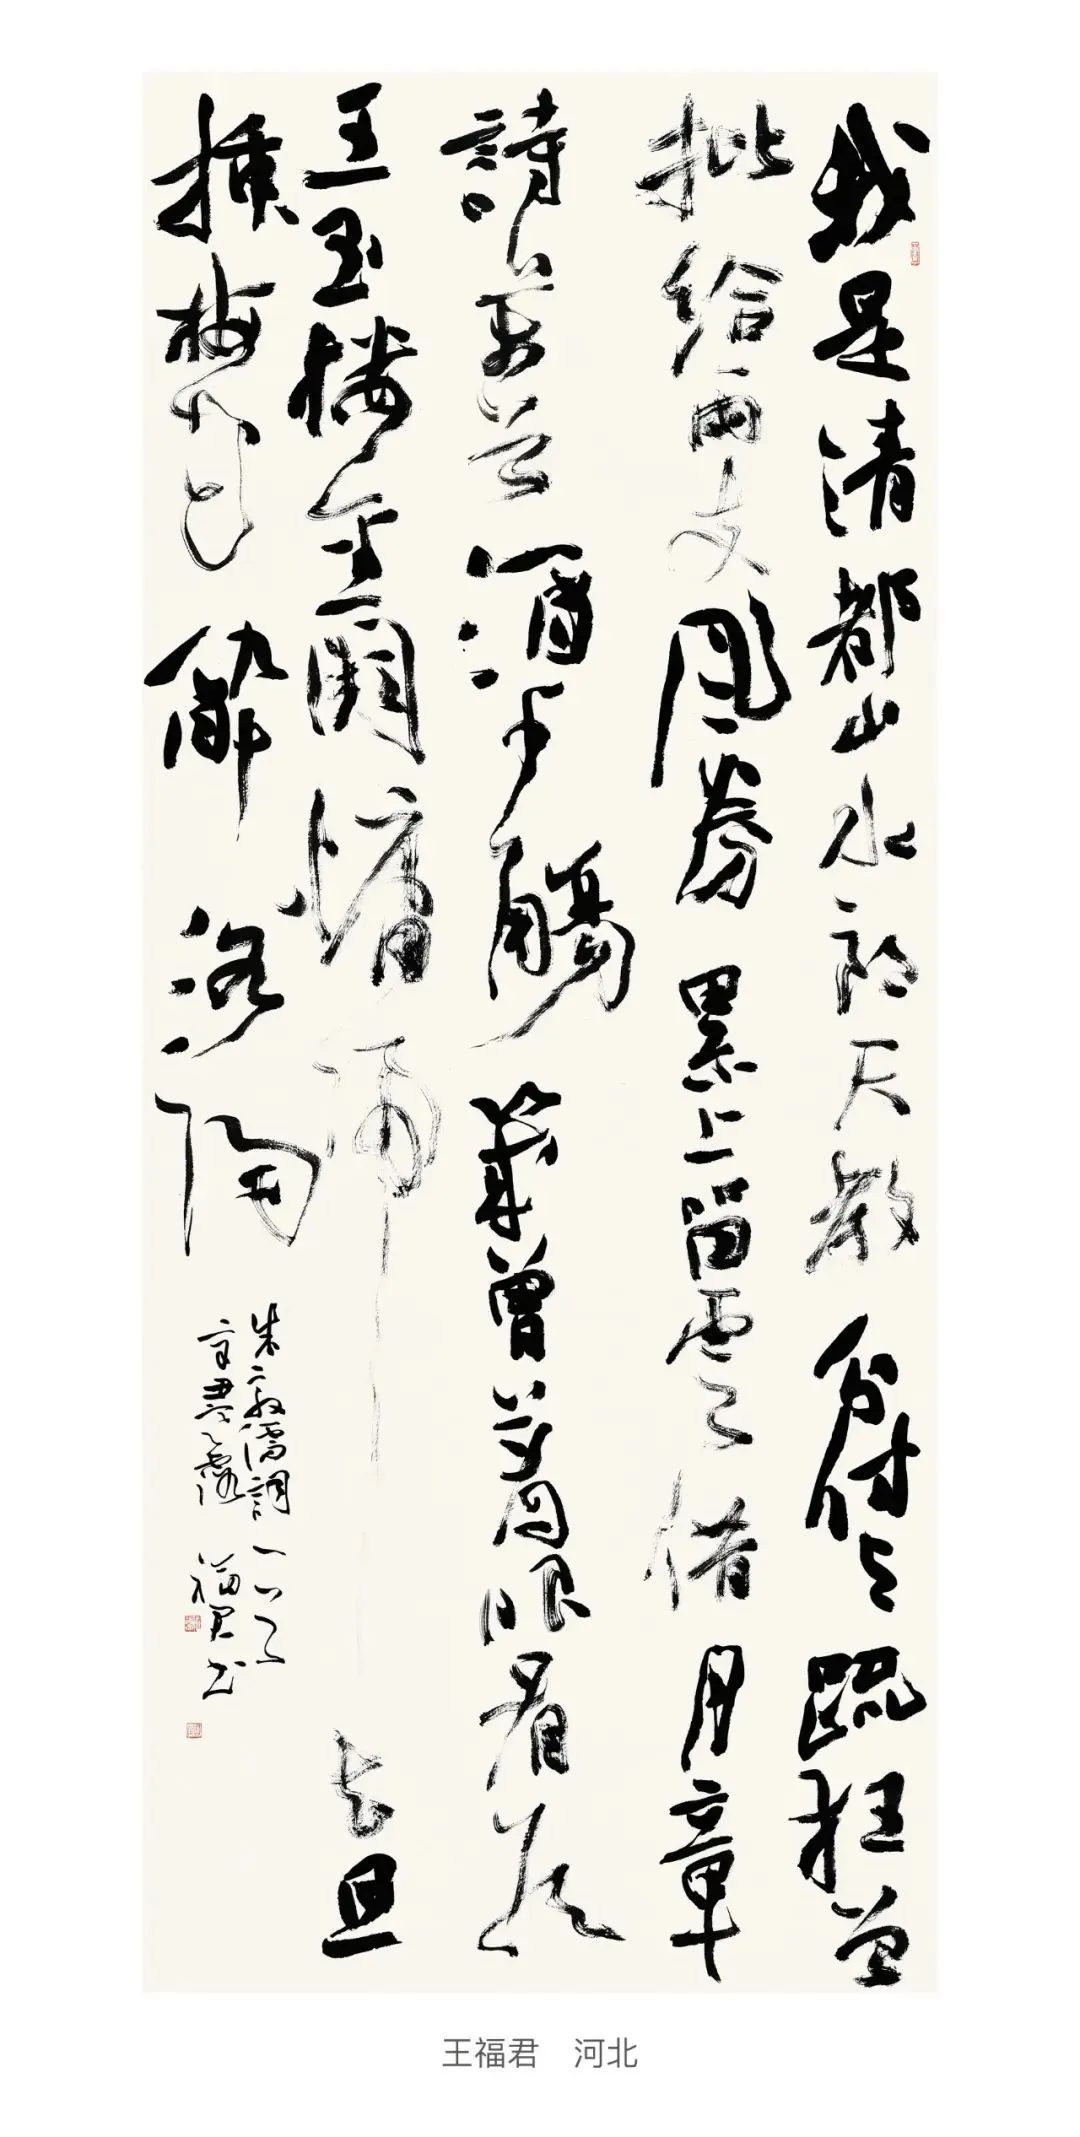 我是清都山水郎天教分付与疏狂曾
批給雨支風券累上留雲借月章
詩萬首酒千觴幾曾著眼看侯
王玉樓金闕慵歸去且
插梅花醉洛陽
朱敦儒詞一首
辛丑寒露 福君书
王福君 河北